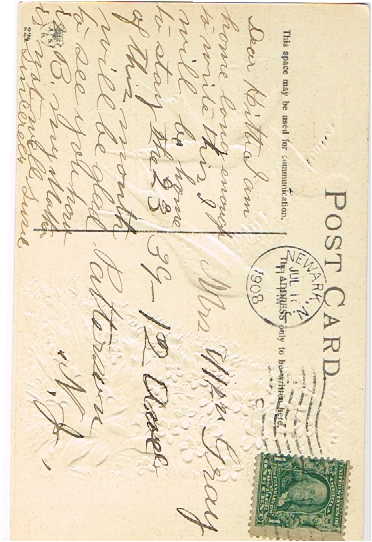 POST CARD
This space may be used for communication.
The ADDRESS only to be written here.
NEWARK, N.J.
JUL
1908
Dear I am
home long enough
to write this I
will be home
to stay the 23
of this month
will be glad
to see you now
B. my
got well since
Sincerely
Mrs Wm Gray
39-12 Ave
Patterson
N.J.
224